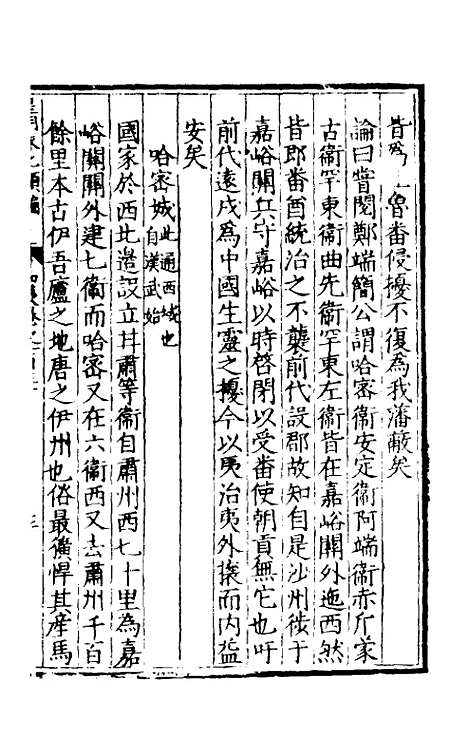 皆爲土魯番侵擾不復爲我藩蔽矣
論曰嘗閱鄭端簡公謂哈密衞安定衞阿端衞赤斤蒙
古衞罕東衞曲先衞罕東左衞皆在嘉峪關外迤西然
皆卽番酋統治之不襲前代設郡故知自是沙州徙于
嘉峪關兵守嘉峪以時啓閉以受番使朝貢無它也吁
前代遠戍爲中國生靈之擾今以夷治夷外攘而内益
安矣
哈密城此通西域也自漢武始
國家於西北邉設立甘肅等衞自肅州西七十里為嘉
峪關關外建七衞而哈密又在六衞西又去肅州千百
餘里本古伊吾廬之地唐之伊州也俗最獷悍其産馬